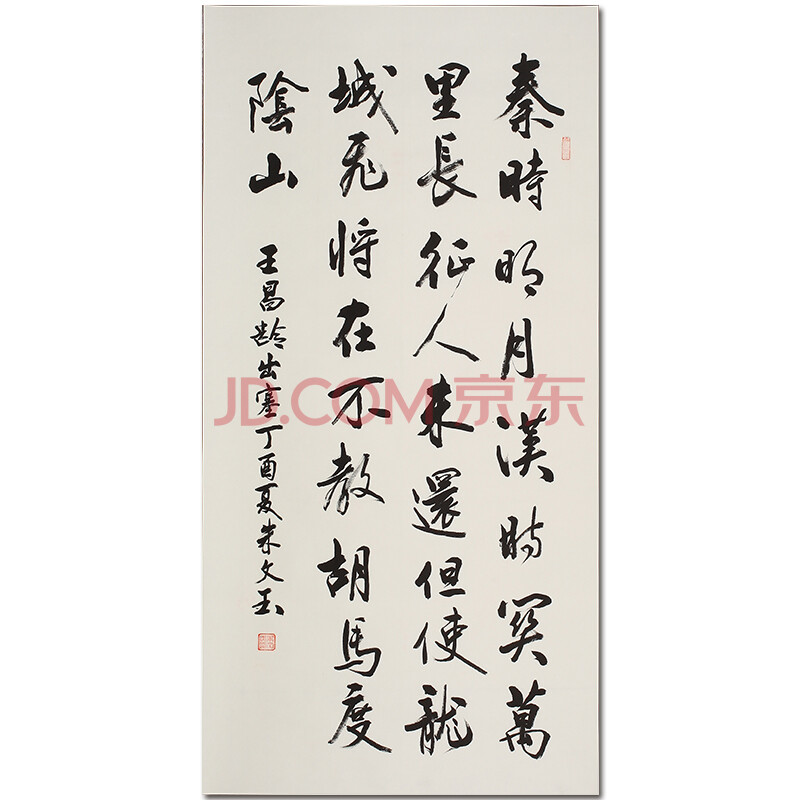 秦時明月漢時関萬
里長征人未還但使龍
城飛将在不教胡馬度
陰山
王昌齡出塞丁酉夏朱文玉
JD.COM 京东